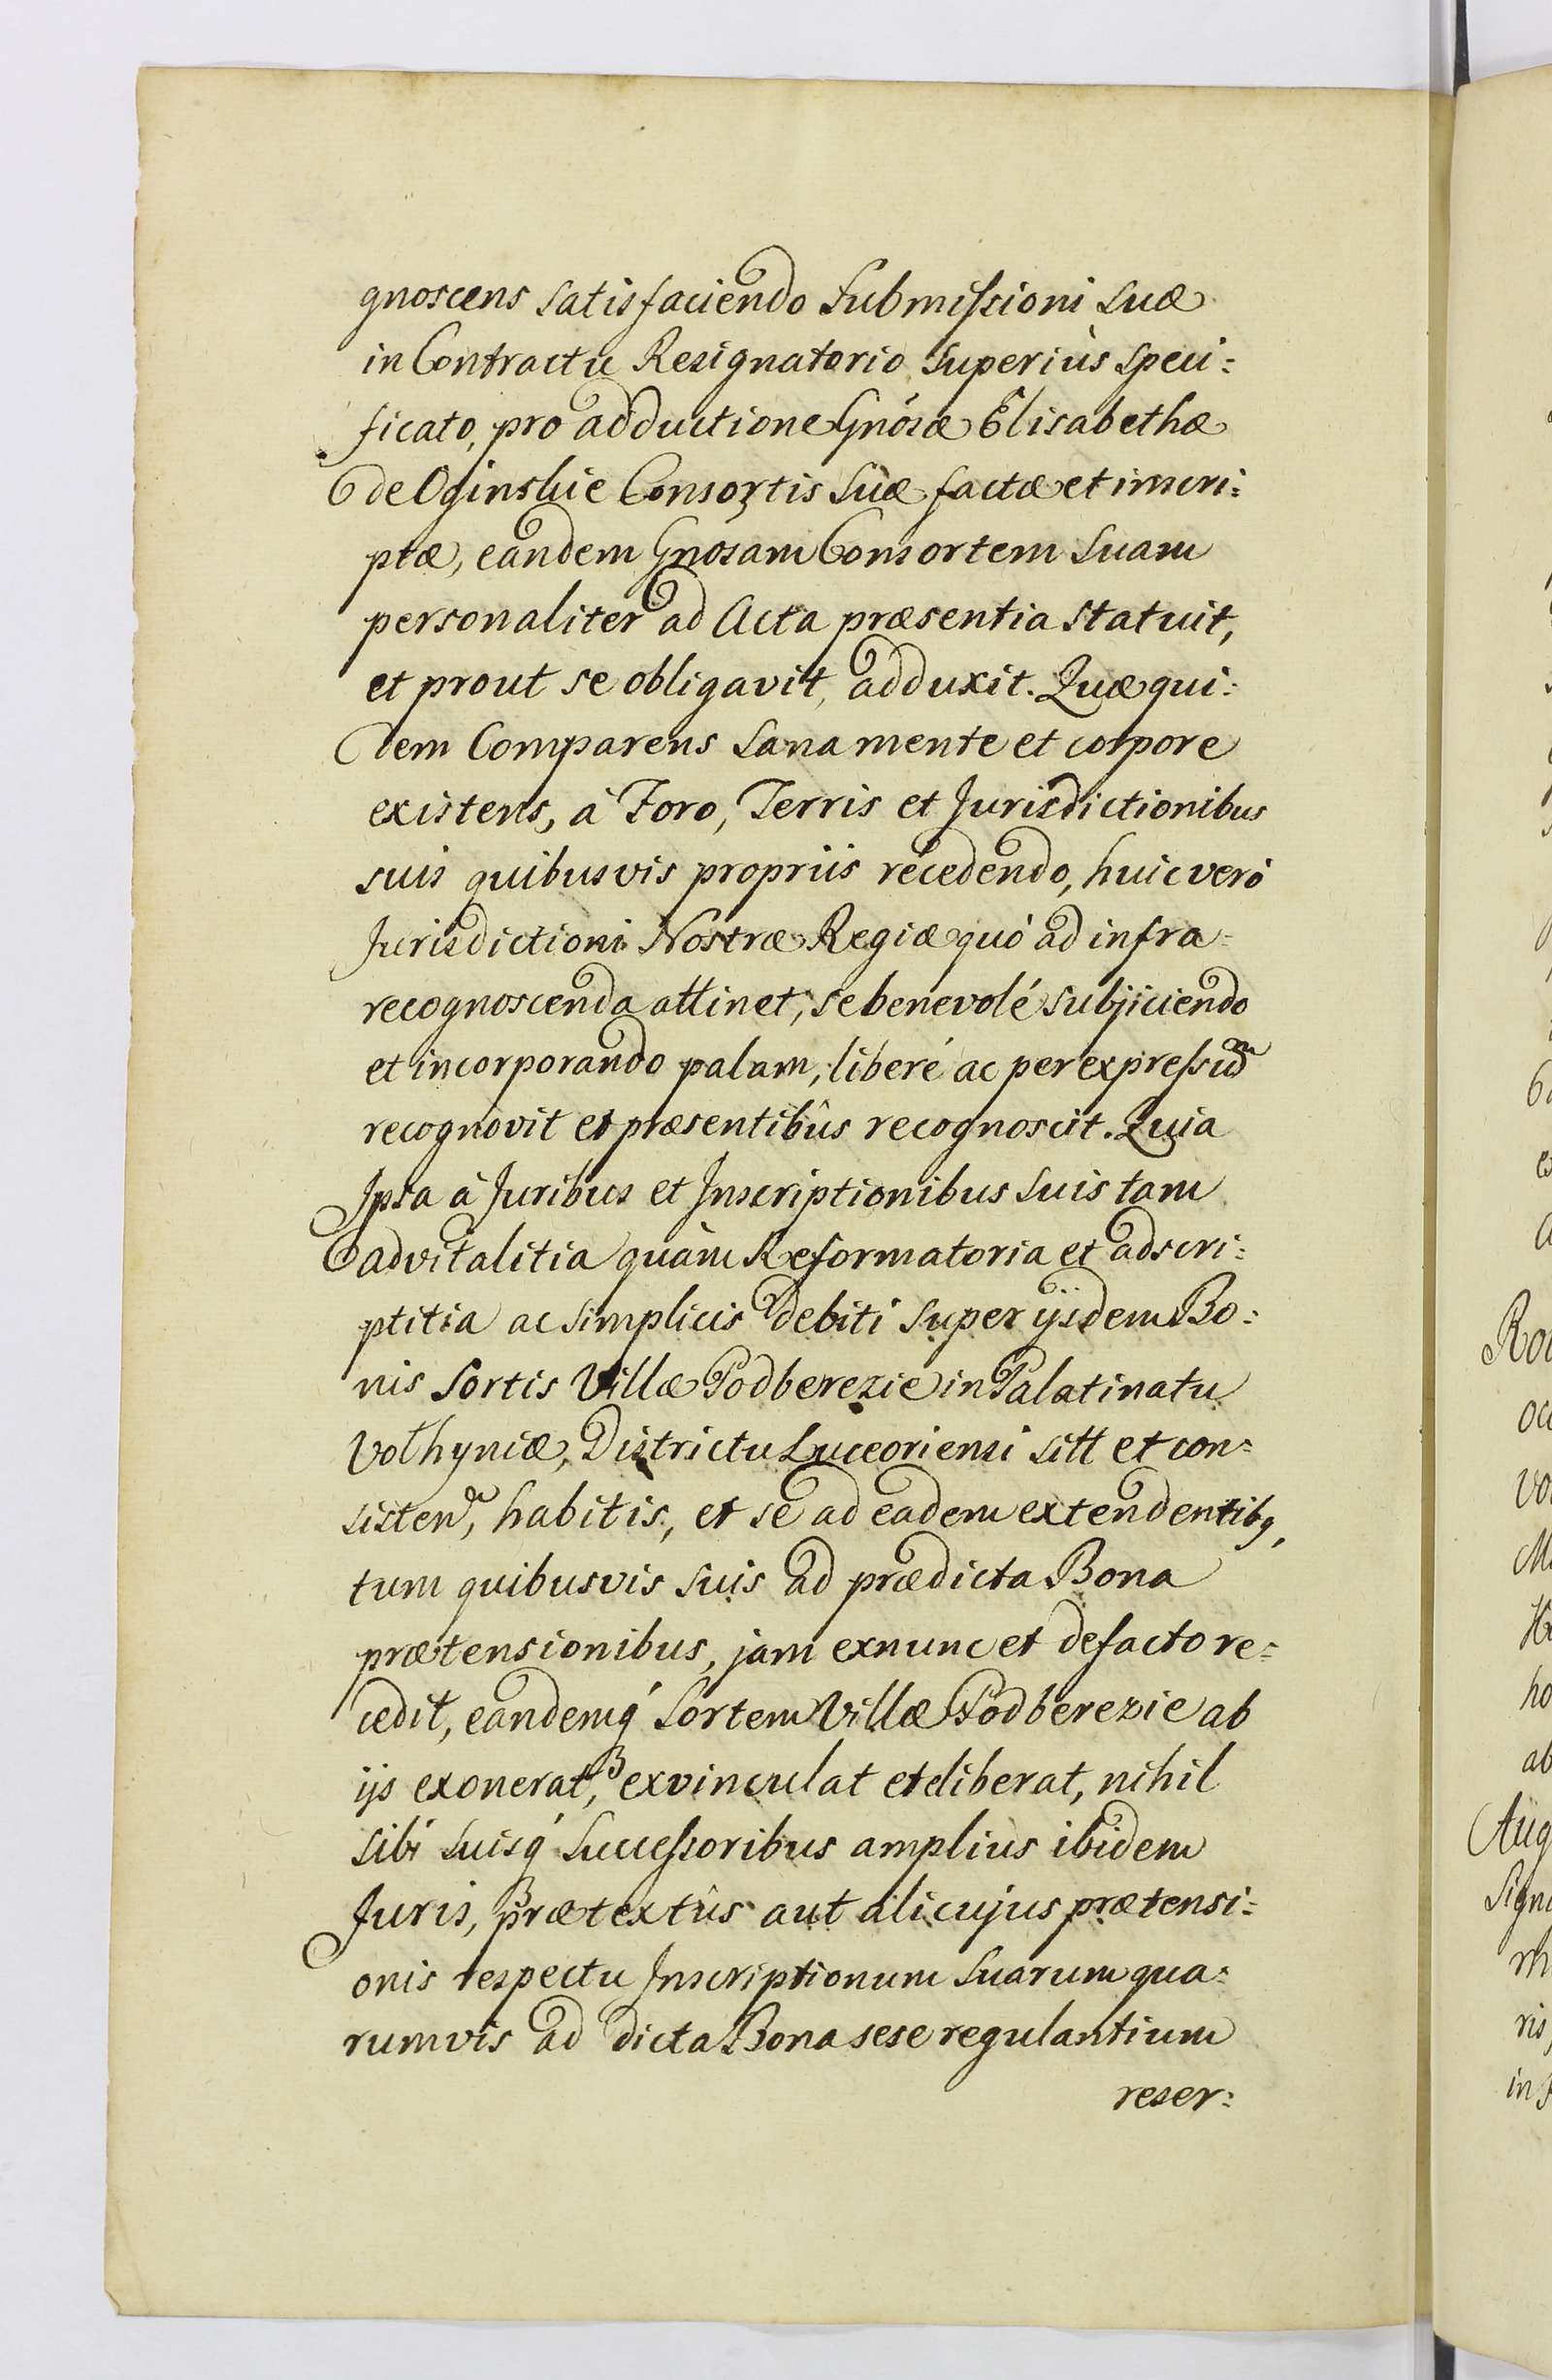 gnoscens satisfaciendo Submissioni suæ
in Contractu Resignatorio superiùs speci=
ficato, pro adductione Gnósæ Elisabethæ
de Oginskie Consortis suæ factæ et inscri=
ptæ, eandem Gnosam Consortem suam
personaliter ad Acta præsentia statuit,
et prout se obligavit, adduxit. Quæ qui=
dem Comparens sana mente et corpore
existens, à Foro, Terris et Jurisdictionibus
suis quibusvis propriis recedendo, huic verò
Jurisdictioni Nostræ Regiæ quò ad infra=
recognoscenda attinet, se benevolé subjiciendo
et incorporando palam, liberé ac per expressum
recognovit et præsentibûs recognoscit. Quia
Ipsa à Juribus et Inscriptionibus suis tam
advitalitia quàm Reformatoria et adscri=
ptitia ac simplicis debiti super ijsdem Bo=
nis Sortis Villæ Podberezie in Palatinatu
Volhyniæ, Districtu Luceoriensi sitt et con=
sisten, habitis, et se ad eadem extendentibq,
tum quibusvis suis ad prædicta Bona
prætensionibus, jam exnunc et defacto re=
cedit, eandemq́ Sortem Villæ Podberezie ab
ijs exonerat, exvinculat et eliberat, nihil
sibi suisq́ Successoribus amplius ibidem
Juris, prætextûs aut alicujus prætensi=
onis respectu Inscriptionum suarum qua=
rumvis ad dicta Bona sese regulantium
reser=
Roc
occ
vo
ho
ab
Aug
Sign
ris,